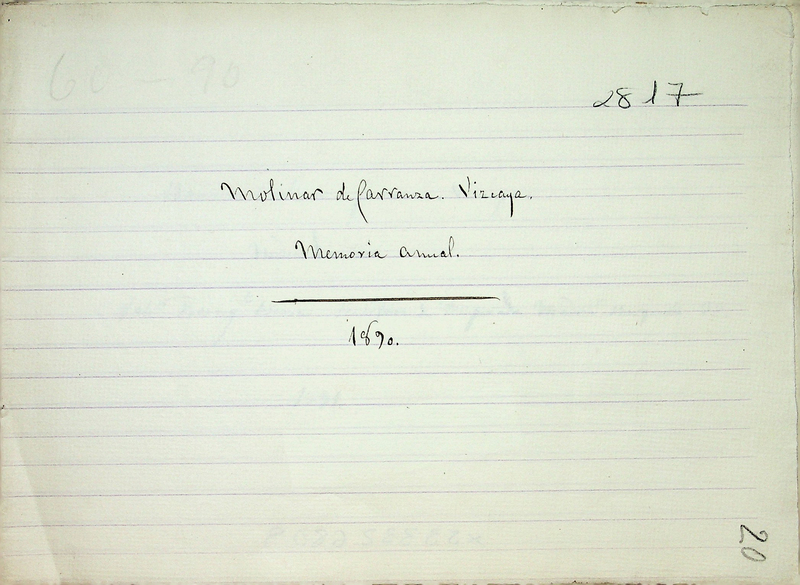 60 - 90
2817
Molinar de Carranza. Vizcaya.
Memoria anual.
1890.
20